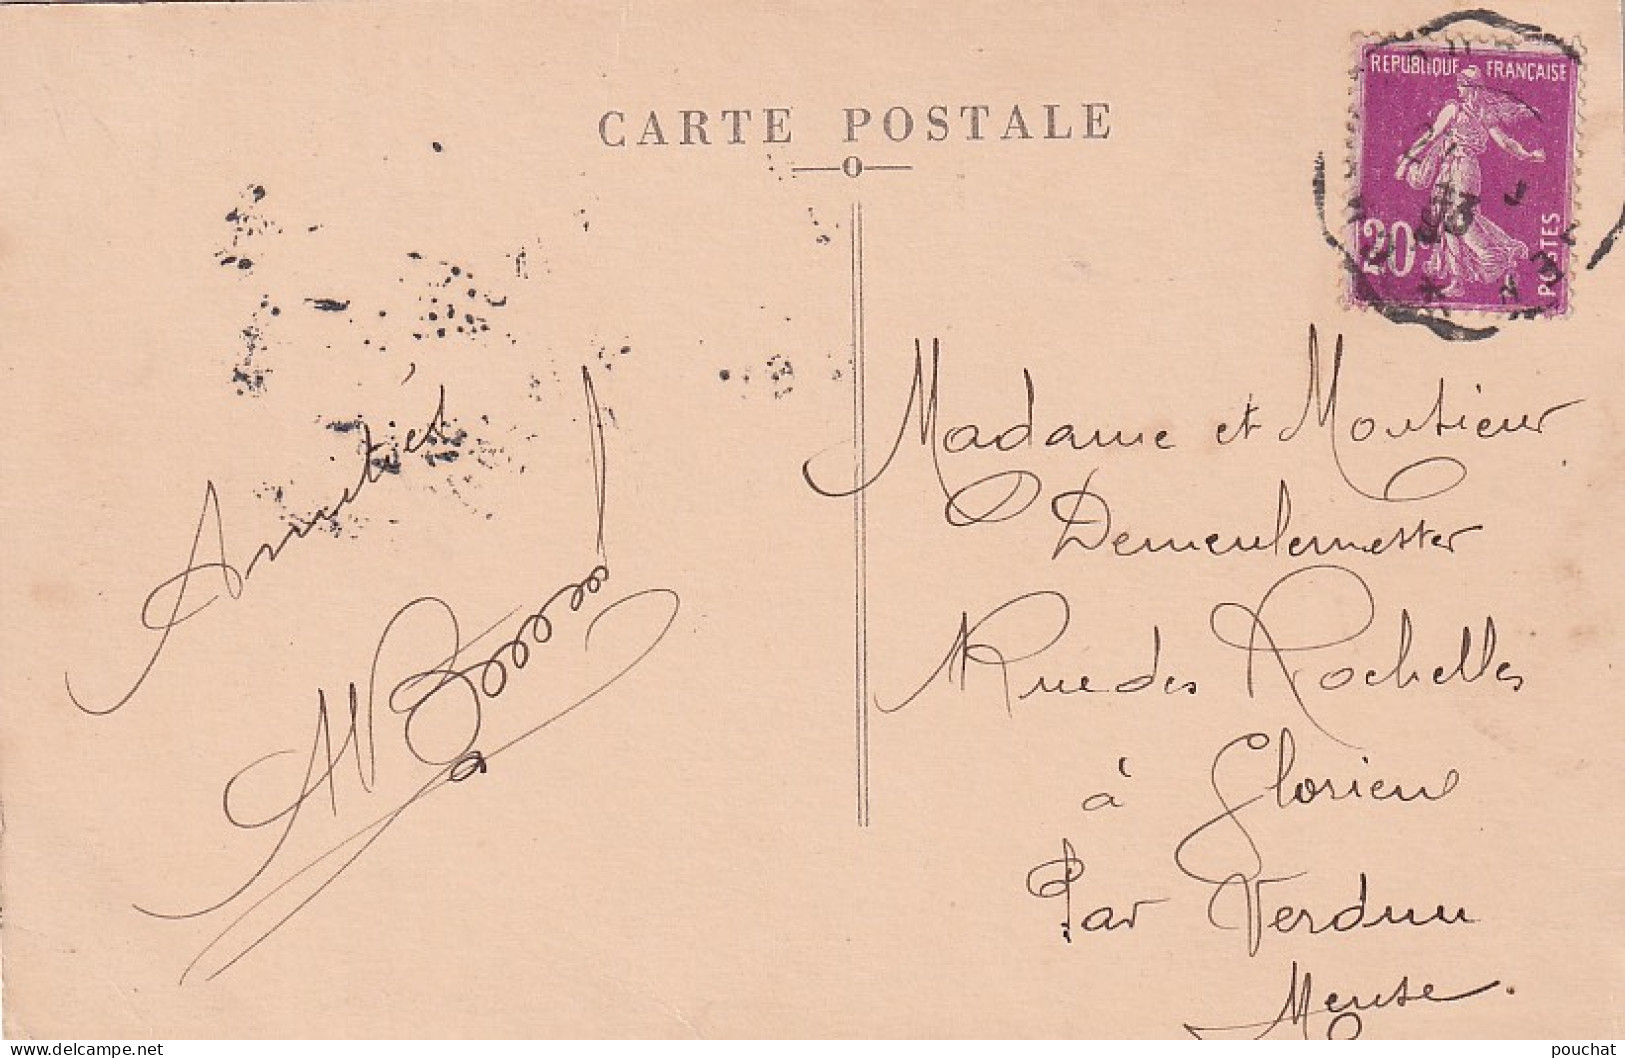 CARTE POSTALE
REPUBLIQUE FRANÇAISE
20
POSTES
Amitiés
Madame et Monsieur
Demeulemester
Rue des Rochelles
à Glorieux
Par Verdun
Meuse.
pouchat